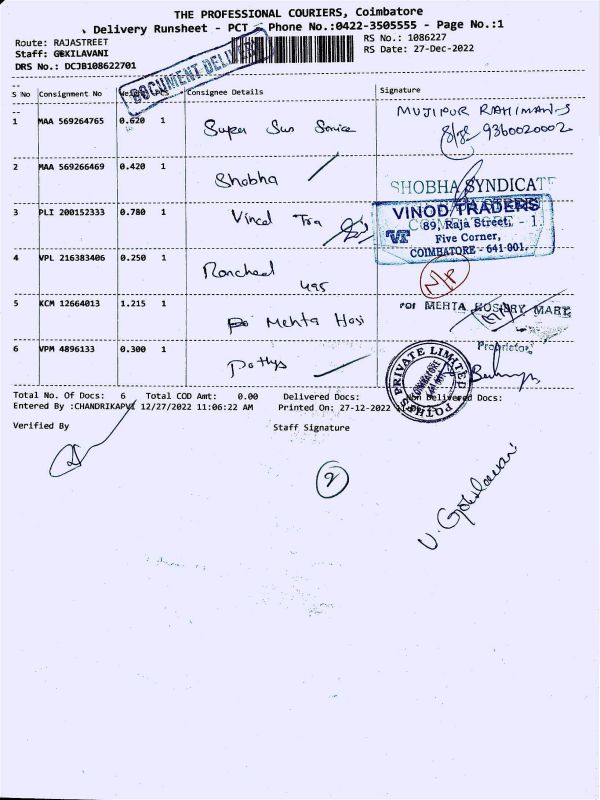 THE PROFESSIONAL COURIERS, Coimbatore
Delivery Runsheet - PCT - Phone No.:0422-3505555 - Page No.:1
Route: RAJASTREET
RS No.: 1086227
Staff: GOKILAVANI
RS Date: 27-Dec-2022
DRS No.: DCJB108622701
DOCUMENT DELIVERY
S No Consignment No Weight PCS Consignee Details Signature
1 MAA 569264765 0.620 1 Super Sun Service MUJIPUR RAHIMAN-S
9360020002
2 MAA 569266469 0.420 1 Shobha SHOBHA SYNDICATE
3 PLI 200152333 0.780 1 Vincel Tra VINOD TRADERS
89, Raja Street,
Five Corner,
COIMBATORE - 641 001.
4 VPL 216383406 0.250 1 495 N/P
5 KCM 12664013 1.215 1 Mehta Hosi For MEHTA HOSIERY MART
Proprietor
6 VPM 4896133 0.300 1 Pothys POTHYS PRIVATE LIMITED
COIMBATORE
Total No. Of Docs: 6 Total COD Amt: 0.00 Delivered Docs: Non Delivered Docs:
Entered By :CHANDRIKAPVI 12/27/2022 11:06:22 AM Printed On: 27-12-2022
Verified By Staff Signature
2
V. Gokilavani